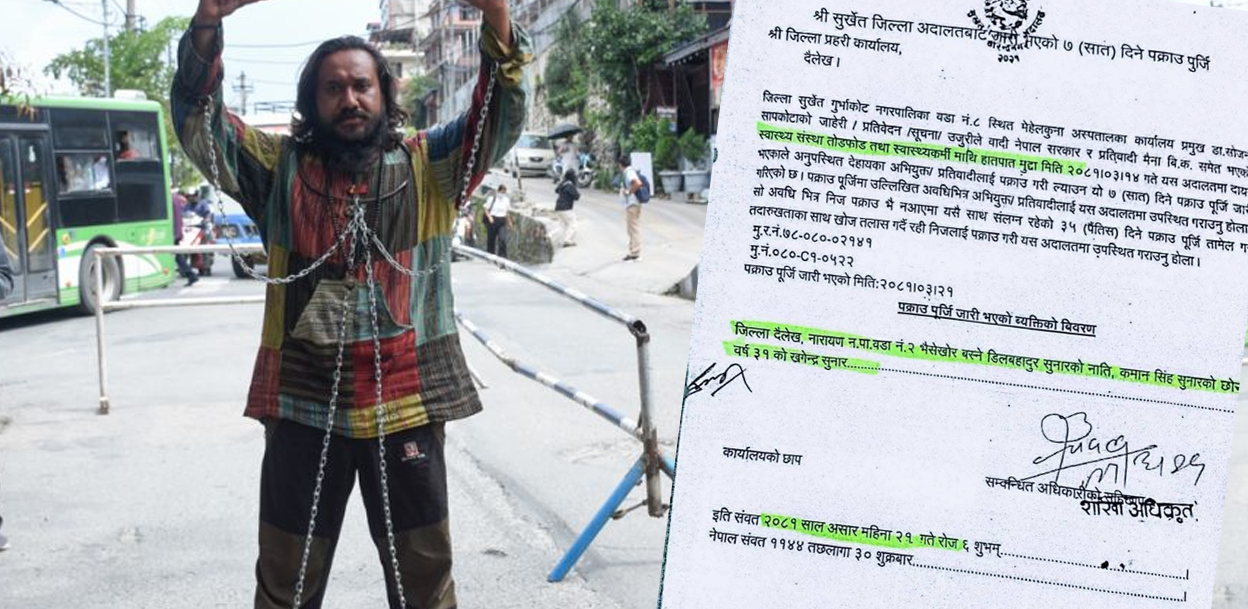 श्री सुर्खेत जिल्ला अदालतबाट जारी भएको ७ (सात) दिने पक्राउ पुर्जि
२०२१
श्री जिल्ला प्रहरी कार्यालय,
दैलेख ।
जिल्ला सुर्खेत गुर्भाकोट नगरपालिका वडा नं.८ स्थित मेहेलकुना अस्पतालका कार्यालय प्रमुख डा.सोजन
सापकोटाको जाहेरी / प्रतिवेदन /सूचना/ उजुरीले वादी नेपाल सरकार र प्रतिवादी मैना बि.क. समेत भएको
स्वास्थ्य संस्था तोडफोड तथा स्वास्थ्यकर्मी माथि हातपात मुद्दा मिति २०८१।०३।१४ गते यस अदालतमा दायर
भएकाले अनुपस्थित देहायका अभियुक्त/ प्रतिवादीलाई पक्राउ गरी ल्याउन यो ७ (सात) दिने पक्राउ पूर्जि जारी
गरिएको छ। पक्राउ पूर्जिमा उल्लिखित अवधिभित्र अभियुक्त/ प्रतिवादीलाई यस अदालतमा उपस्थित गराउनु होला
सो अवधि भित्र निज पक्राउ भै नआएमा यसै साथ संलग्न रहेको ३५ (पैतिस) दिने पक्राउ पूर्जि तामेल
तदारुखताका साथ खोज तलास गर्दै रही निजलाई पक्राउ गरी यस अदालतमा उपस्थित गराउनु होला।
मु.र.नं.७८-०८०-०२१४१
मु.नं.०८०-C१-०५२२
पक्राउ पूर्जि जारी भएको मिति:२०८१।०३।२१
पक्राउ पूर्जि जारी भएको ब्यक्तिको बिवरण
जिल्ला दैलेख, नारायण न.पा.वडा नं.२ भैसेखोर बस्ने डिलबहादुर सुनारको नाति, कमान सिंह सुनारको छोर
वर्ष ३१ को खगेन्द्र सुनार
कार्यालयको छाप
सम्वन्धित अधिकारीको
शाखा अधिकृत
इति संवत २०८१ साल असार महिना २१ गते रोज ६ शुभम्
नेपाल संवत ११४४ तछलागा ३० शुक्रबार